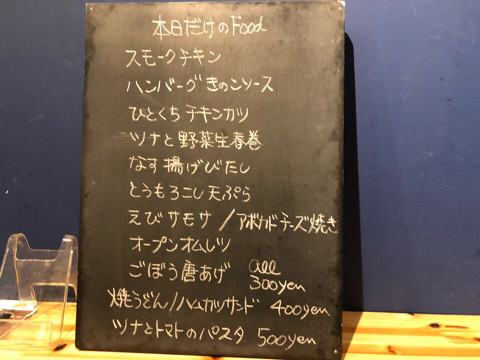 本日だけのFood
スモークチキン
ハンバーグきのこソース
ひとくちチキンカツ
ツナと野菜生春巻
なす揚げびたし
とうもろこし天ぷら
えびサモサ / アボカドチーズ焼き
オープンオムレツ
ごぼう唐あげ all 300yen
焼うどん/ハムカツサンド 400yen
ツナとトマトのパスタ 500yen